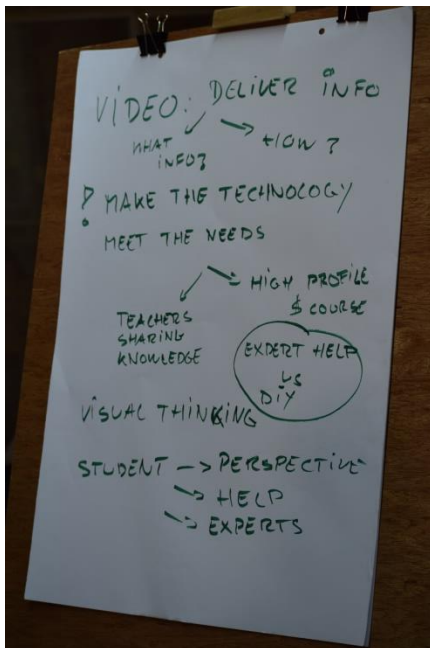 VIDEO: DELIVER INFO
WHAT
INFO?
HOW?
! MAKE THE TECHNOLOGY
MEET THE NEEDS
HIGH PROFILE
$ COURSE
TEACHERS
SHARING
KNOWLEDGE
EXPERT HELP
VS
DIY
VISUAL THINKING
STUDENT -> PERSPECTIVE
-> HELP
-> EXPERTS